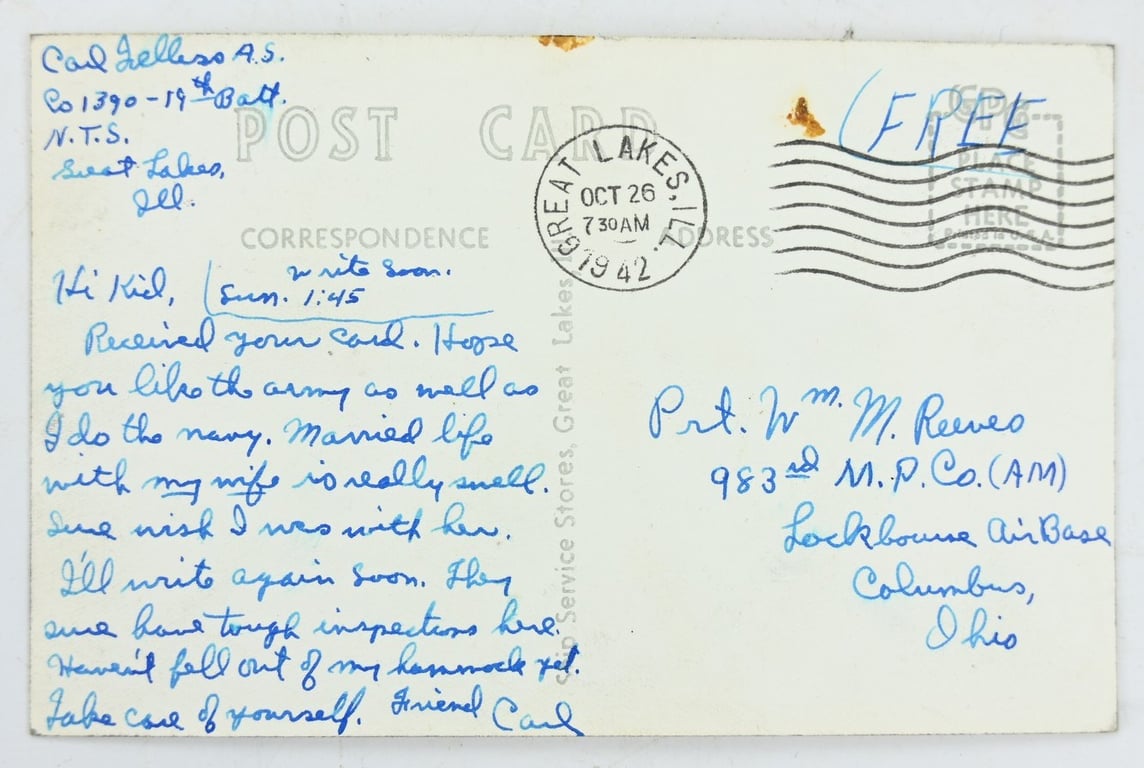 Carl A.S.
Co 1390 - 19th Batt.
N.T.S.
Great Lakes,
Ill.
POST CARD
CORRESPONDENCE
ADDRESS
GREAT LAKES, ILL.
OCT 26
7 30 AM
1942
(FREE
PLACE
STAMP
HERE
Hi Kid,
write soon.
Sun. 1:45
Received your card. Hope
you like the army as well as
I do the navy. Married life
with my wife is really swell.
Sure wish I was with her.
I'll write again soon. They
sure have tough inspections here.
Haven't fell out of my hammock yet.
Take care of yourself. Friend Carl
Ship Service Stores, Great Lakes
Pvt. Wm. M. Reeves
983rd M.P. Co. (AM)
Lockbourne Air Base
Columbus,
Ohio